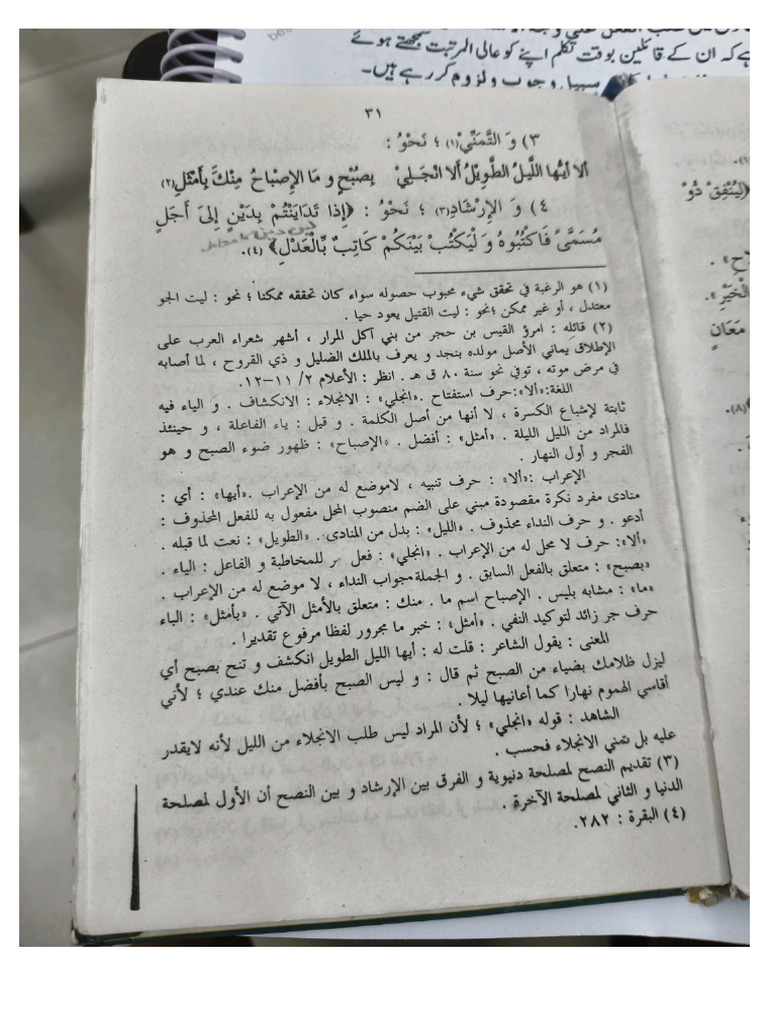 ہے کہ ان کے قائلین بوقت تکلم اپنے کو عالی المرتبت سمجھتے ہوئے
سبیل وجوب ولزوم کر رہے ہیں۔
٣١
٣) وَ التَّمَنِّيْ(١) ؛ نَحْوُ :
أَلاَ أَيُّهَا اللَّيلُ الطَّوِيْلُ أَلاَ انْجَلِيْ بِصُبْحٍ وَ مَا الإِصْبَاحُ مِنْكَ بِأَمْثَلِ(٢)
٤) وَ الإِرْشَادِ(٣) ؛ نَحْوُ : ﴿إِذَا تَدَايَنْتُمْ بِدَيْنٍ إِلىَ أَجَلٍ
مُسَمَّىً فَاكْتُبُوهُ وَ لْيَكْتُبْ بَيْنَكُمْ كَاتِبٌ بِّالْعَدْلِ﴾ (٤).
(١) هو الرغبة في تحقق شيء محبوب حصوله سواء كان تحققه ممكنا ؛ نحو : ليت الجو
معتدل ، أو غير ممكن ؛نحو : ليت القتيل يعود حيا .
(٢) قائله : امرؤ القيس بن حجر من بني آكل المرار ، أشهر شعراء العرب على
الإطلاق يماني الأصل مولده بنجد و يعرف بالملك الضليل و ذي القروح ، لما أصابه
في مرض موته ، توفي نحو سنة ٨٠ ق هـ . انظر : الأعلام ٢/ ١١-١٢.
اللغة:«ألا»:حرف استفتاح .«انجلي» : الانجلاء : الانكشاف . و الياء فيه
ثابتة لإشباع الكسرة ، لا أنها من أصل الكلمة . و قيل : ياء الفاعلة ، و حينئذ
فالمراد من الليل الليلة . «أمثل» : أفضل . «الإصباح» : ظهور ضوء الصبح و هو
الفجر و أول النهار .
الإعراب :«ألا» : حرف تنبيه ، لاموضع له من الإعراب .«أيها» : أي :
منادى مفرد نكرة مقصودة مبني على الضم منصوب المحل مفعول به للفعل المحذوف :
أدعو . و حرف النداء محذوف . «الليل» : بدل من المنادى . «الطويل» : نعت لما قبله .
«ألا»: حرف لا محل له من الإعراب . «انجلي» : فعل للمخاطبة و الفاعل : الياء .
«بصبح» : متعلق بالفعل السابق . و الجملة جواب النداء ، لا موضع له من الإعراب .
«ما» : مشابه بليس . الإصباح اسم ما . منك : متعلق بالأمثل الآتي . «بأمثل» : الباء
حرف جر زائد لتوكيد النفي . «أمثل» : خبر ما مجرور لفظا مرفوع تقديرا .
المعنى : يقول الشاعر : قلت له : أيها الليل الطويل انكشف و تنح بصبح أي
ليزل ظلامك بضياء من الصبح ثم قال : و ليس الصبح بأفضل منك عندي ؛ لأني
أقاسي الهموم نهارا كما أعانيها ليلا .
الشاهد : قوله «انجلي» ؛ لأن المراد ليس طلب الانجلاء من الليل لأنه لايقدر
عليه بل تمني الانجلاء فحسب .
(٣) تقديم النصح لمصلحة دنيوية و الفرق بين الإرشاد و بين النصح أن الأول لمصلحة
الدنيا و الثاني لمصلحة الآخرة .
(٤) البقرة : ٢٨٢.